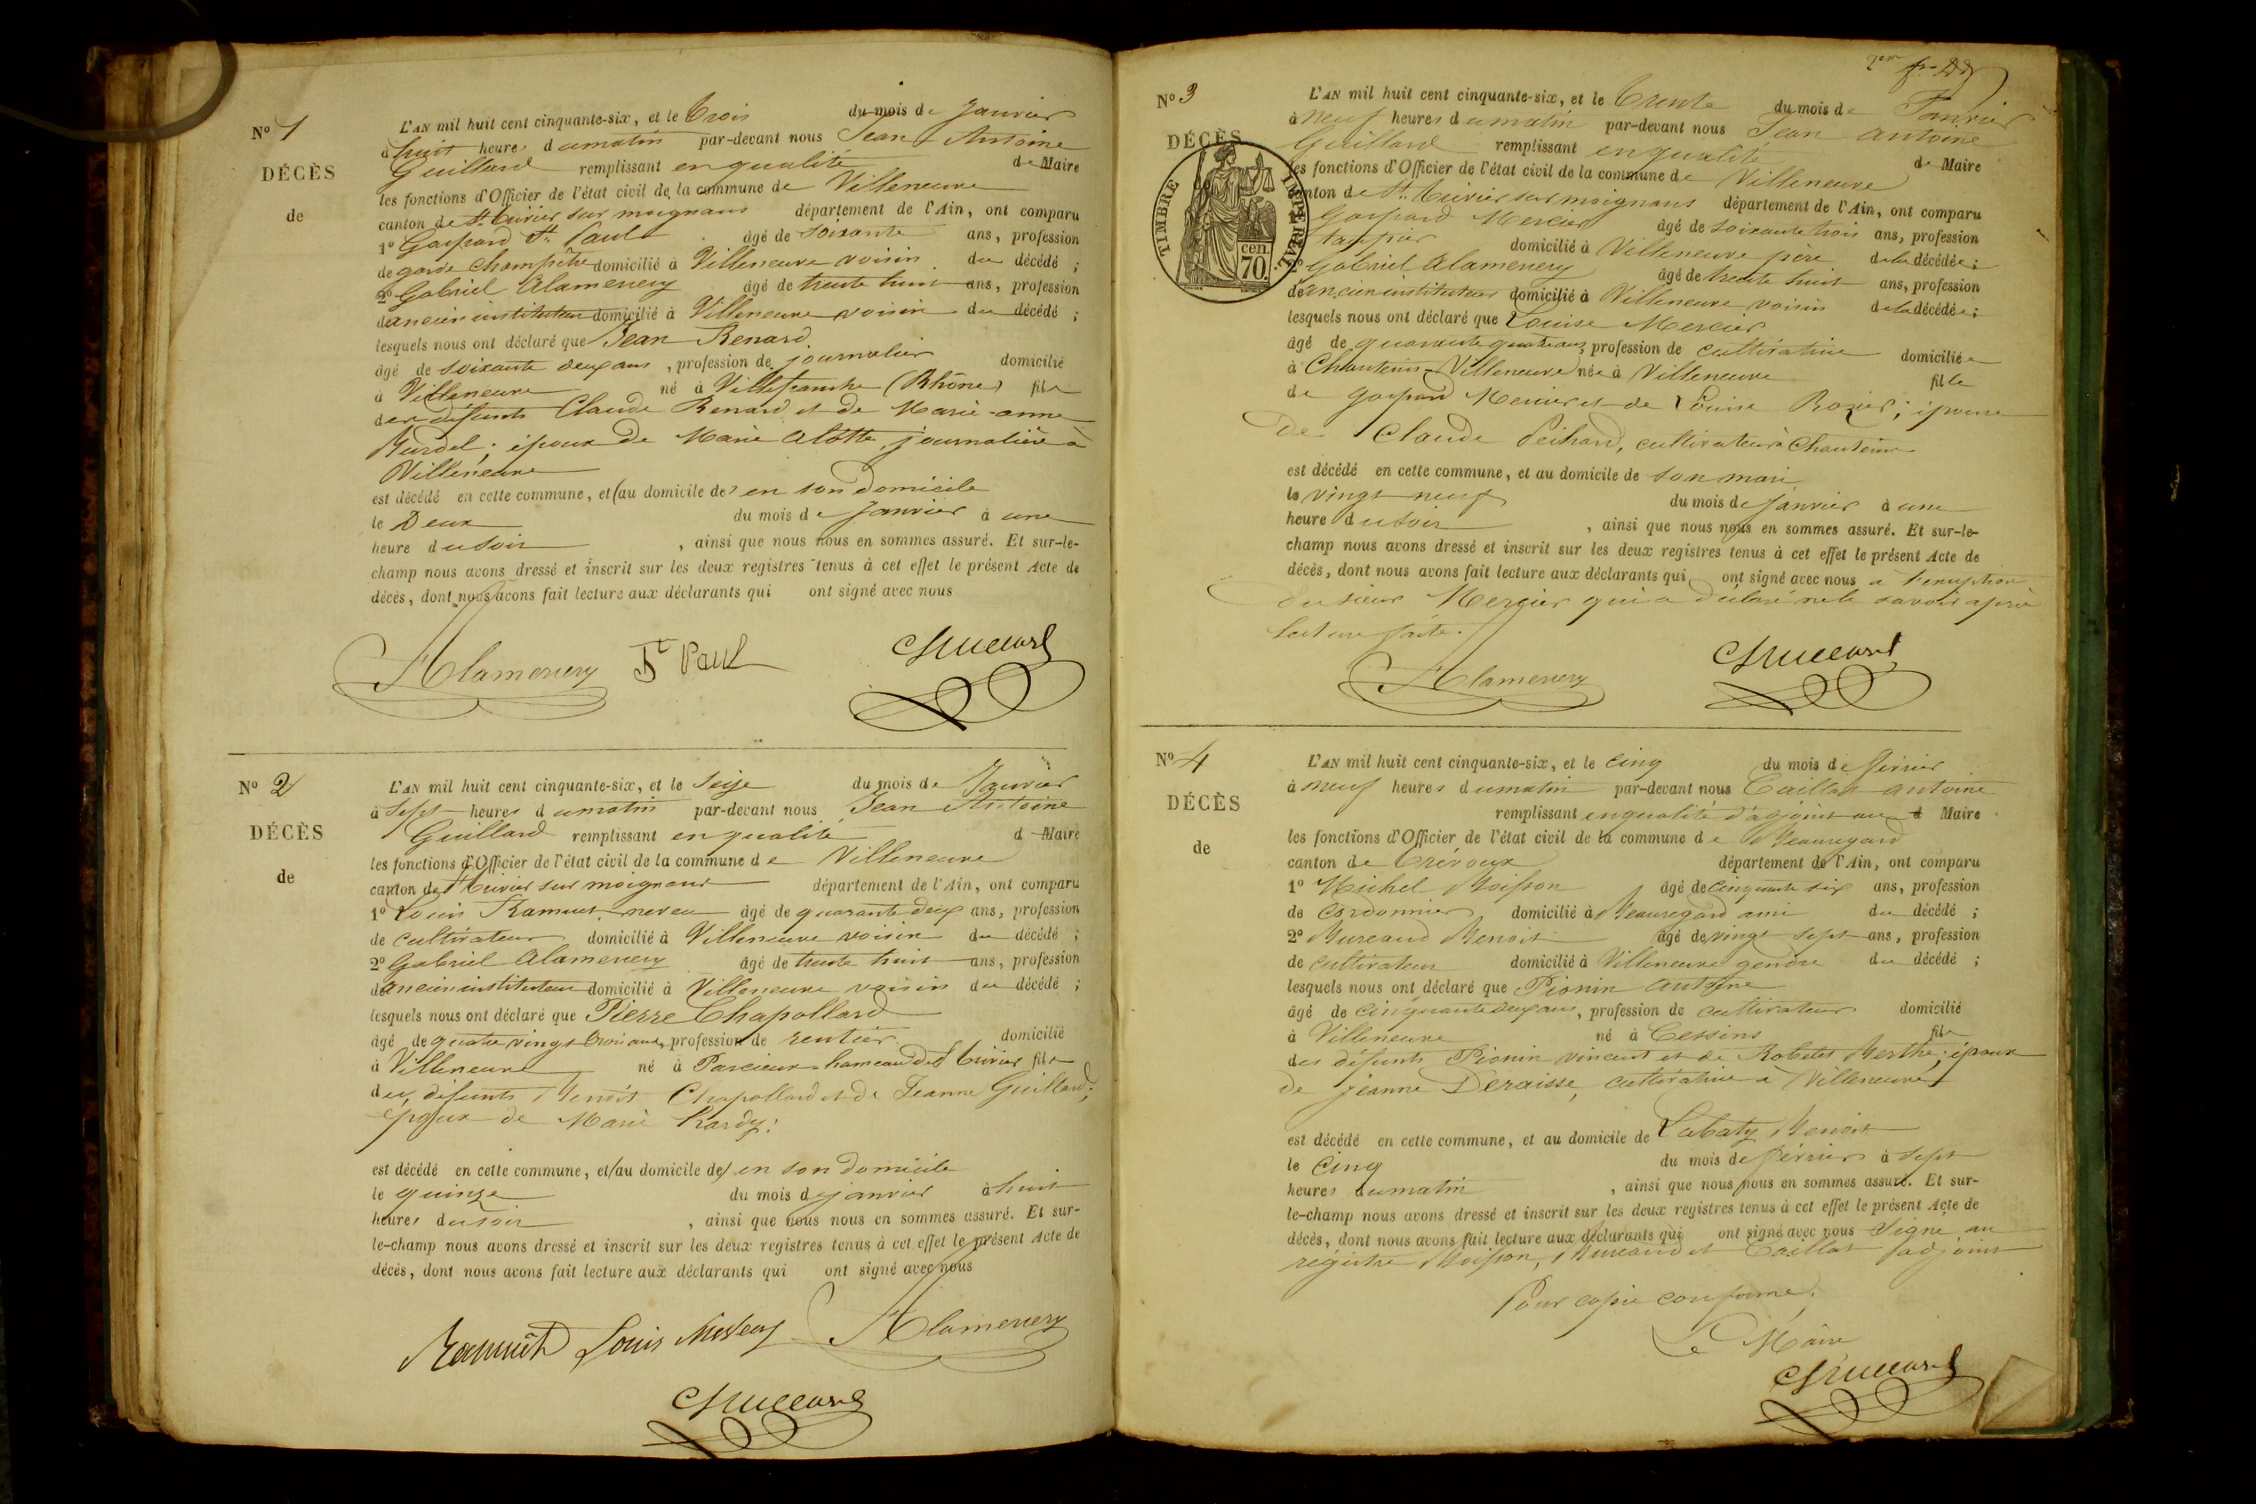 N° 1
DÉCÈS
de
L'AN mil huit cent cinquante-six, et le Trois du mois de Janvier
à huit heures du matin par-devant nous Jean Antoine
Guillard remplissant en qualité de Maire
les fonctions d'Officier de l'état civil de la commune de Villeneuve
canton de St Trivier sur moignans département de l'Ain, ont comparu
1° Gaspard St Paul âgé de soixante ans, profession
de garde champêtre domicilié à Villeneuve voisin du décédé ;
2° Gabriel Alamercery âgé de trente huit ans, profession
d'ancien instituteur domicilié à Villeneuve voisin du décédé ;
lesquels nous ont déclaré que Jean Renard
âgé de soixante deux ans, profession de journalier domicilié
à Villeneuve né à Villefranche (Rhône) fils
des défunts Claude Renard et de Marie-anne
époux de Marie journalière à
Villeneuve
est décédé en cette commune, et (au domicile de) en son domicile
le Deux du mois de Janvier à une
heure du soir, ainsi que nous nous en sommes assuré. Et sur-le-
champ nous avons dressé et inscrit sur les deux registres tenus à cet effet le présent Acte de
décès, dont nous avons fait lecture aux déclarants qui ont signé avec nous
Alamercery St Paul Guillard
N° 2
DÉCÈS
de
L'AN mil huit cent cinquante-six, et le Seize du mois de Janvier
à Sept heures du matin par-devant nous Jean Antoine
Guillard remplissant en qualité d Maire
les fonctions d'Officier de l'état civil de la commune de Villeneuve
canton de St Trivier sur moignans département de l'Ain, ont comparu
1° Louis Ramuet neveu âgé de quarante deux ans, profession
de cultivateur domicilié à Villeneuve voisin du décédé ;
2° Gabriel Alamercery âgé de trente huit ans, profession
d'ancien instituteur domicilié à Villeneuve voisin du décédé ;
lesquels nous ont déclaré que Pierre Chapollard
âgé de quatre vingt trois ans, profession de rentier domicilié
à Villeneuve né à Parcieux hameau de St Trivier fils
des défunts Benoit Chapollard et de Jeanne Guillard ;
époux de Marie
est décédé en cette commune, et (au domicile de) en son domicile
le quinze du mois de janvier à huit
heures du soir, ainsi que nous nous en sommes assuré. Et sur-
le-champ nous avons dressé et inscrit sur les deux registres tenus à cet effet le présent Acte de
décès, dont nous avons fait lecture aux déclarants qui ont signé avec nous
Ramuet Louis Neveu Alamercery
Guillard
N° 3
DÉCÈS
TIMBRE IMPÉRIAL
70 cen
L'AN mil huit cent cinquante-six, et le Trente du mois de Janvier
à neuf heures du matin par-devant nous Jean Antoine
Guillard remplissant en qualité de Maire
les fonctions d'Officier de l'état civil de la commune de Villeneuve
canton de St Trivier sur moignans département de l'Ain, ont comparu
Gaspard Mercier âgé de soixante trois ans, profession
domicilié à Villeneuve père de la décédée ;
Gabriel Alamercery âgé de trente huit ans, profession
d'ancien instituteur domicilié à Villeneuve voisin de la décédée ;
lesquels nous ont déclaré que Louise Mercier
âgé de quarante quatre ans, profession de cultivatrice domiciliée
à Chanteins Villeneuve née à Villeneuve fille
de gaspard Mercier et de Louise Rozier ; épouse
De Claude cultivateur à Chanteins
est décédé en cette commune, et au domicile de son mari
le vingt neuf du mois de Janvier à une
heure du soir, ainsi que nous nous en sommes assuré. Et sur-le-
champ nous avons dressé et inscrit sur les deux registres tenus à cet effet le présent Acte de
décès, dont nous avons fait lecture aux déclarants qui ont signé avec nous à l'exception
du sieur Mercier qui a déclaré ne le savoir après
lecture faite.
Alamercery Guillard
N° 4
DÉCÈS
de
L'AN mil huit cent cinquante-six, et le cinq du mois de février
à neuf heures du matin par-devant nous Caillat antoine
remplissant en qualité d'adjoint au d Maire
les fonctions d'Officier de l'état civil de la commune de Beauregard
canton de Trévoux département de l'Ain, ont comparu
1° Michel Boisson âgé de cinquante six ans, profession
de cordonnier domicilié à Beauregard ami du décédé ;
2° Bureaud Benoit âgé de vingt sept ans, profession
de cultivateur domicilié à Villeneuve gendre du décédé ;
lesquels nous ont déclaré que Pionin Antoine
âgé de cinquante deux ans, profession de cultivateur domicilié
à Villeneuve né à Cessins fils
des défunts Pionin vincent et de Berthe ; époux
de jeanne Deraisse, cultivatrice à Villeneuve
est décédé en cette commune, et au domicile de Labaty Benoit
le Cinq du mois de février à sept
heures du matin, ainsi que nous nous en sommes assuré. Et sur-
le-champ nous avons dressé et inscrit sur les deux registres tenus à cet effet le présent Acte de
décès, dont nous avons fait lecture aux déclarants qui ont signé avec nous Signé au
registre Boisson, Bureaud et Caillat adjoint
Pour copie conforme,
Le Maire
Guillard